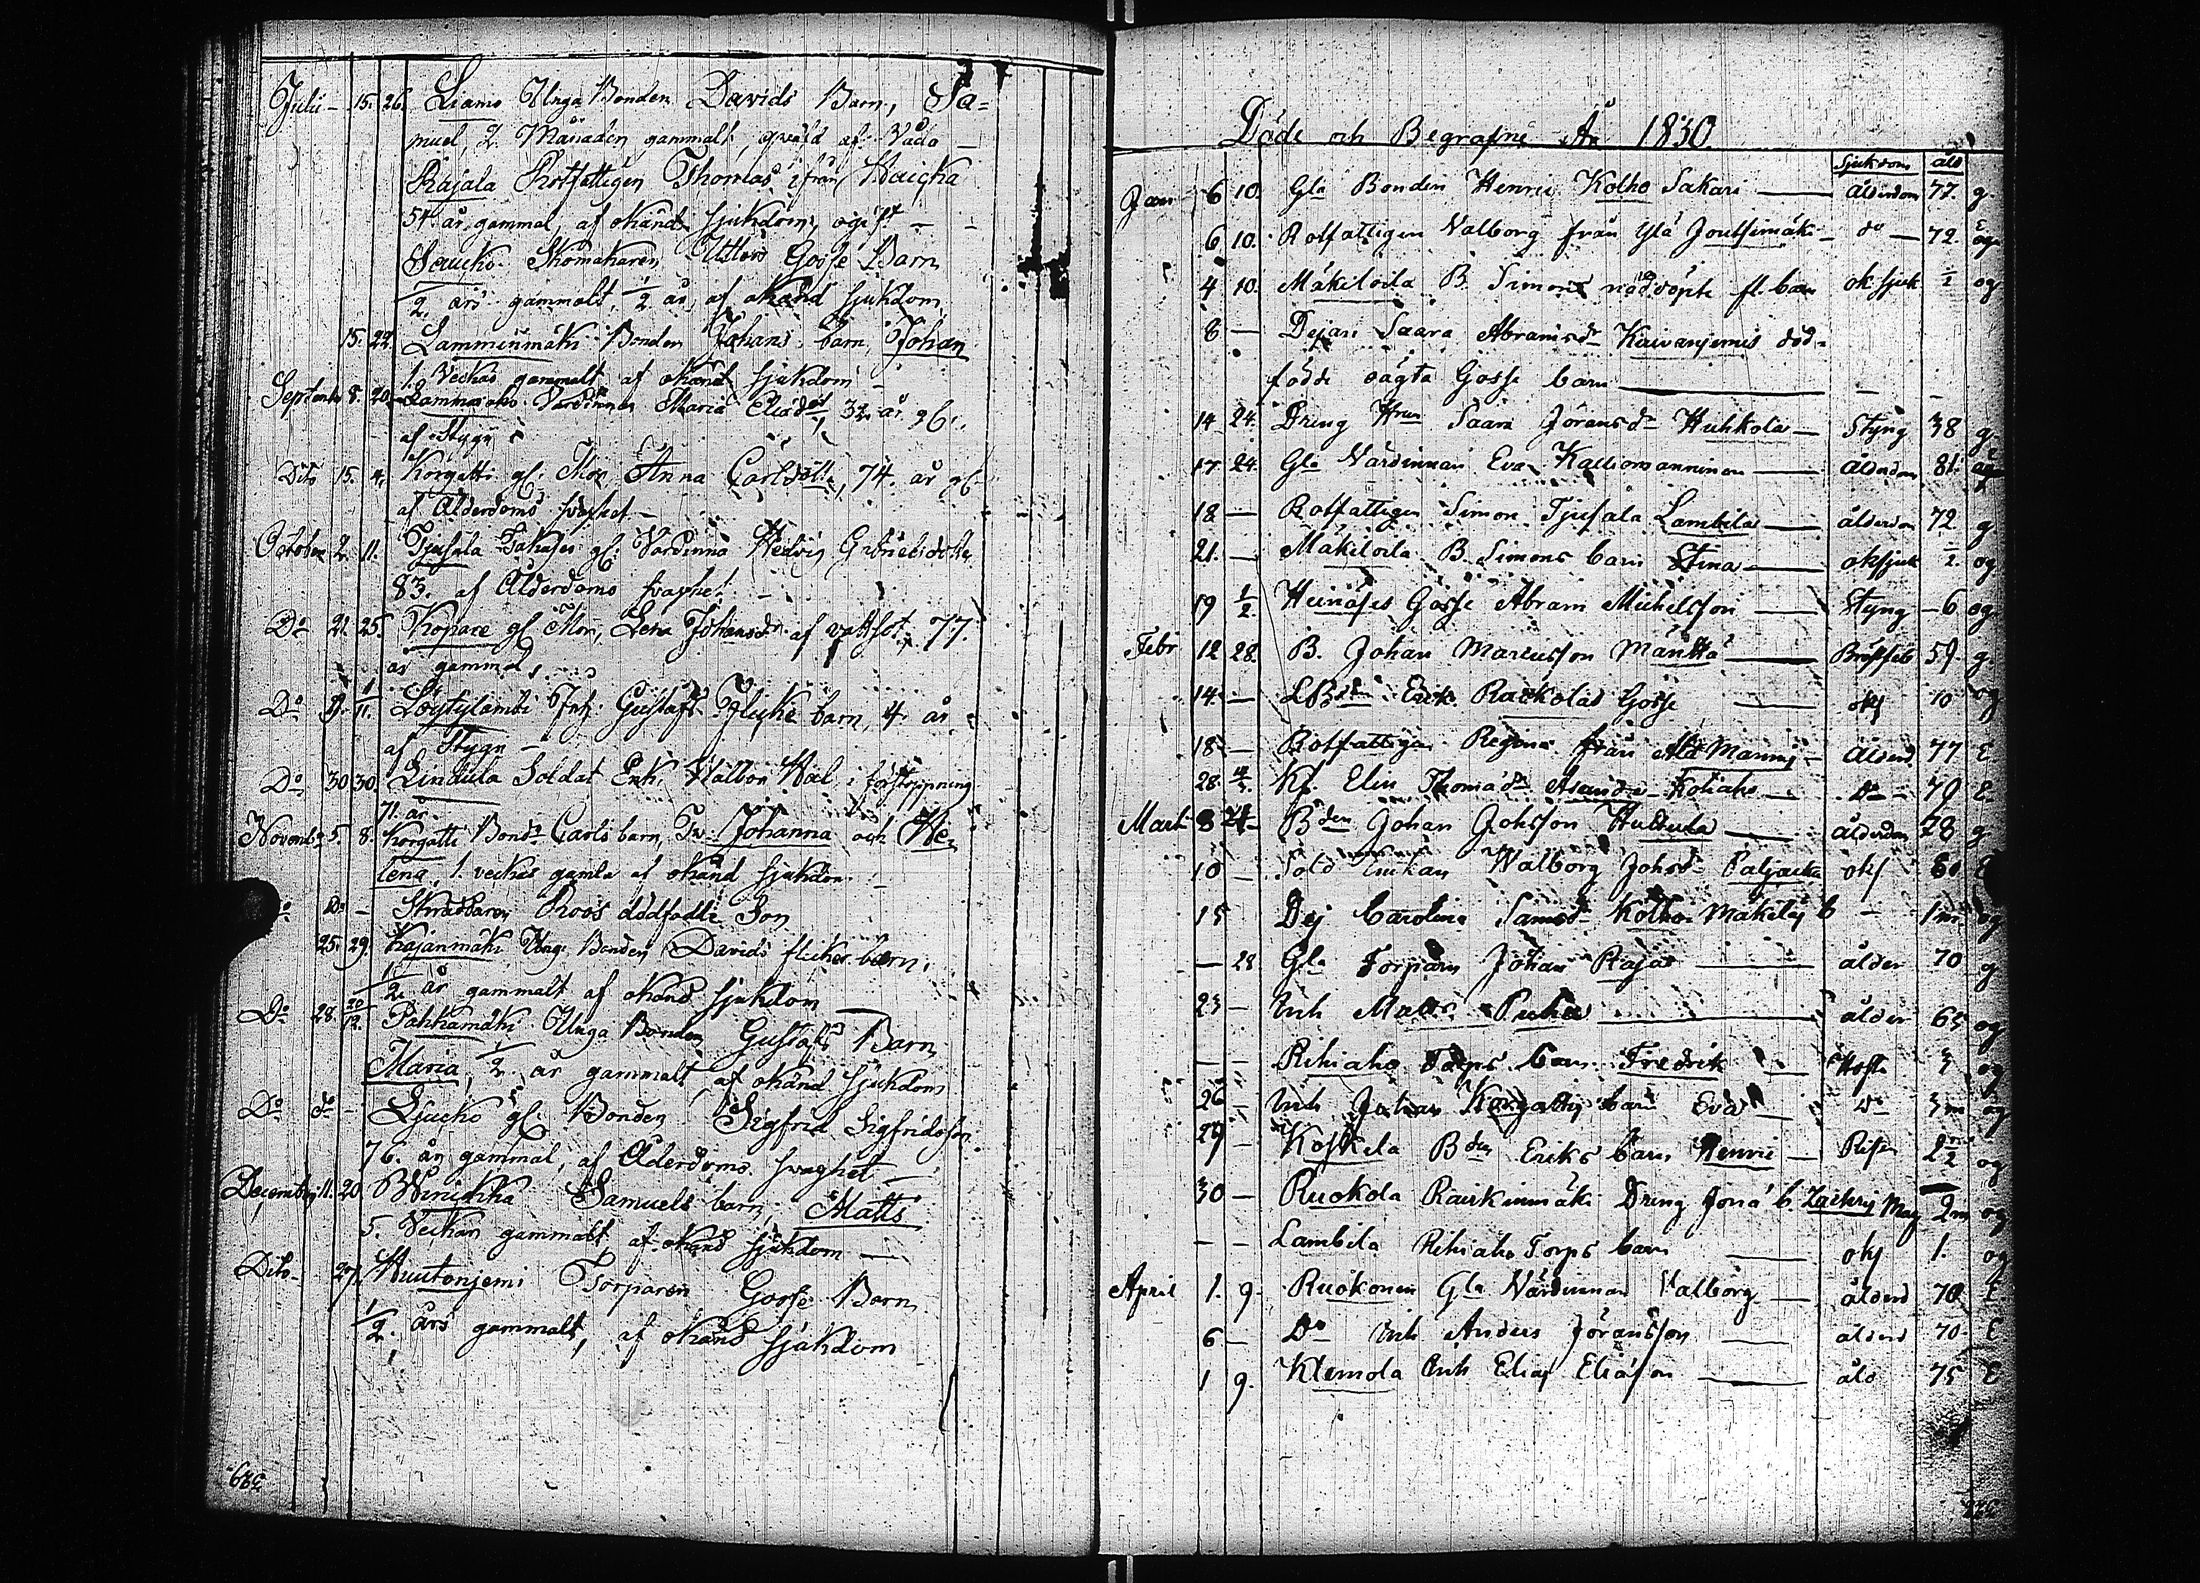 Julii - 15. 26. Liamo Unga Bonden Davids Barn, Sa=
muel, 2 Månaden gammalt, qväfd af Våda -
Rajala Rotfattigen Thomas ifrån Haicka
54 år gammal, af okänd sjukdom, ogift - -
Saucko Skomakaren Gosse Barn
1/2 års gammalt, 1/2 år, af okänd sjukdom
15. 22. Lamminmäki Bonden Johans barn, Johan
1. Veckas gammalt af okänd sjukdom -
Septemb 8. 20. Värdinnan Maria 32 år gl.
af Stygn
Dito 15. 4. Korgatti gl. Mor Anna Carlsdotter, 74 år gl.
af Ålderdoms svaghet -
October 2. 11. Tjusala gl. Värdinna Hedvig Gabrielsdotter
83. af Ålderdoms svaghet
Do 21. 25. Kopare gl. Mor, Lena Johansdr af vattsot. 77.
år gammal,
Do Löytylambi Inh. Gustafs Flicke barn, 4 år
af Stygn -
Do 30 30. Lindula Soldat Enk. i förstoppning
71. år
Novemb 5. 8. Korgatti Bond. Carls barn, Tw. Johanna och He=
lena, 1. veckas gamla af okänd sjukdom -
Do Do - Skräddaren Roos dödfödde Son
25. 29. Kajanmäki Ung Bonden Davids flicke barn,
1/2 år gammalt af okänd sjukdom
Do 28. 20/12. Pahkamäki Unga Bonden Gustafs Barn
Maria, 1/2 år gammalt, af okänd sjukdom
Do do - Ljucko gl. Bonden Sigfrid Sigfridsson
76. år gammal, af Ålderdoms svaghet -
December 11. 20. Winickka Samuels barn, Matts
5. Veckor gammalt af okänd sjukdom -
Dito - 27. Huutonjemi Torparen Gosse Barn
1/2. års gammalt, af okänd sjukdom
389.
Döde och Begrafne År 1830.
Sjukdom åld
Jan 6 10. Gla Bonden Henric Kolho Sakari — ålderdom 77. g.
6 10. Rotfattigen Valborg från Ylä Joutsimäki - do - 72. E
4 10. Mäkiloila B. Simons nöddöpte fl. barn ok sjuk 1/2 og
6 — Dejan Saara Abramsdr Kaivanjemis död=
födde oägta Gosse barn — - -
14 24. Dreng Hrun Saara Göransdr Huhkola — Styng 38 g
17 24. Gla Värdinnan Eva Kalliomanninen — ålderdom 81.
18 — Rotfattigen Simon Tjusala Lambila — ålderdom 72 g
21. — Mäkiloila B. Simons barn Stina — oksjuk 1/2. og
19 1/2 Heinäses Gosse Abram Michelsson — Styng - 6 og
Febr 12 28. B. Johan Marcusson Mänttä — Bröstfeb 59. g.
14. — Erik Rackolas Gosse — okj 10 og
18 — Rotfattigen Regina från Ala Manni - ålderd. 77 E
28. Kf. Elin Thomædr Koliaho — Do - 79 E
Mart 8 21 - Bden Johan Johsson Huttula — ålderdom 78 g.
10 — Sold Enkan Walborg Johsdr Paljacka okj 60 E
15 Dej Carolina Samsd Kolho Mäkiläs b - 1 mn og
— 28 Gla Torparn Johan Raja — ålder 70 g
23 — Inh Matts Puha — ålder 65 og
— - Rihiaho Torps barn Fredrik — Hosta 3 og
26 — Inh Johan Korgattis barn Eva — Do 3 m og
29 — Koskela Bden Eriks barn Henric — Risen 2 1/2 og
30 — Ruokola Raiskinmäki Dreng Jona b. Zachris Mag 2 m og
- - Lambila Rihiaho Torps barn — okj 1. og
April 1. 9. Ruokonen Gla Värdinnan Valborg — ålderd 70 E
6 — Do Inh Anders Jöransson — ålderd 70. E
1 9. Klemola Inh Elias Eliæson — åld 75 E